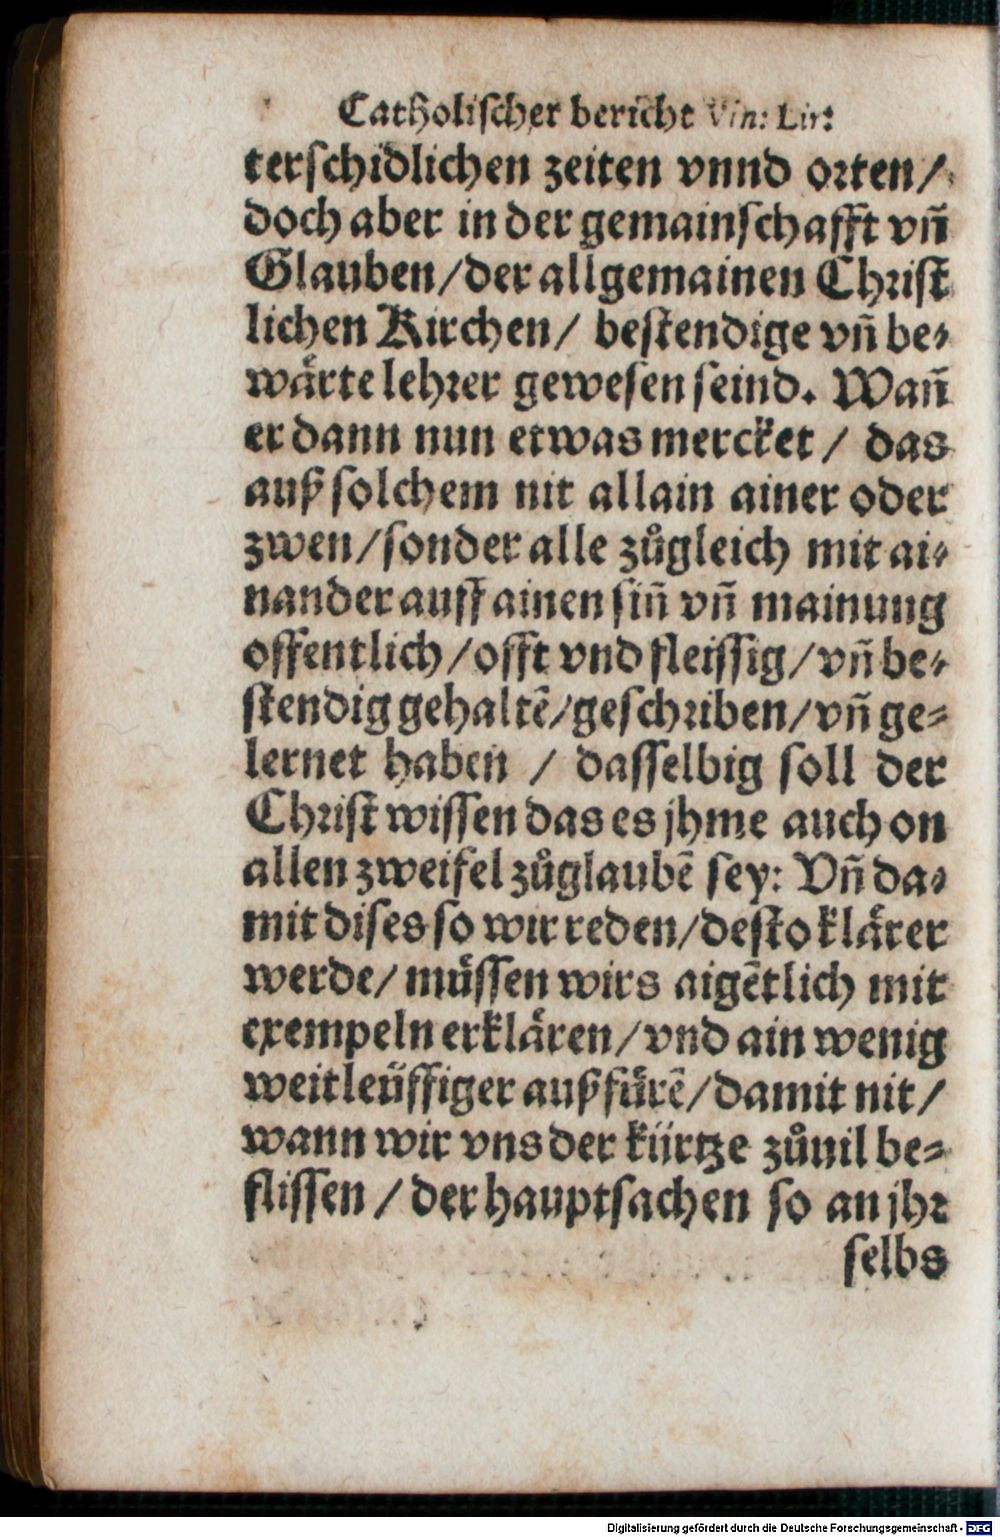 Catholischer bericht Vin: Lir:
terschidlichen zeiten vnnd orten/
doch aber in der gemainschafft vñ
Glauben/der allgemainen Christ
lichen Kirchen/ bestendige vñ be-
wårte lehrer gewesen seind. Wañ
er dann nun etwas mercket / das
auß solchem nit allain ainer oder
zwen/sonder alle zůgleich mit ai-
nander auff ainen siñ vñ mainung
offentlich/offt vnd fleissig/vñ be-
stendig gehaltẽ/geschriben/vñ ge-
lernet haben / dasselbig soll der
Christ wissen das es jhme auch on
allen zweifel zůglaubẽ sey: Vñ da-
mit dises so wir reden/desto klårer
werde/ müssen wirs aigẽtlich mit
exempeln erklåren/vnd ain wenig
weitleüffiger außfürẽ/damit nit/
wann wir vns der kürtze zůuil be-
flissen / der hauptsachen so an jhr
selbs
Digitalisierung gefördert durch die Deutsche Forschungsgemeinschaft - DFG